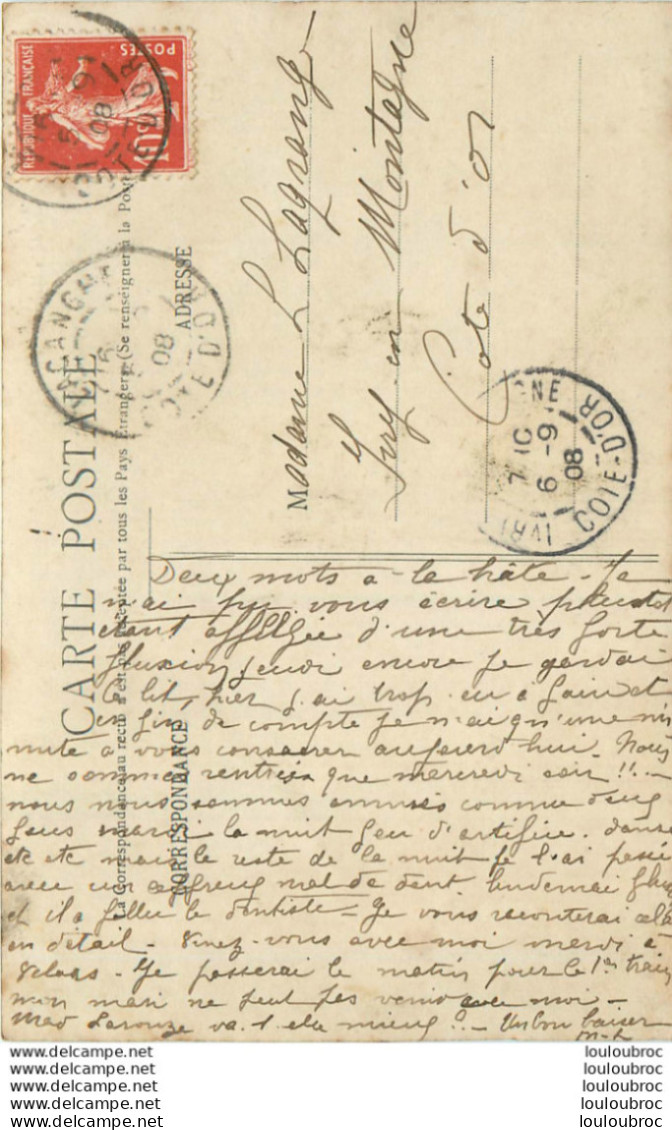 RÉPUBLIQUE FRANÇAISE
POSTES
10c
08
COTE D'OR
CARTE POSTALE
La Correspondance au recto n'est pas acceptée par tous les Pays Étrangers (Se renseigner à la Poste)
CORRESPONDANCE
ADRESSE
08
COTE D'OR
Madame L Lagrange
Ivry en Montagne
Cote d'or
7 10
6 -9
08
COTE-D'OR
Deux mots à la hâte - Je
n'ai pu vous écrire plutot
étant affligée d'une très forte
fluxion jeudi encore je gardai
le lit, hier j'ai trop eu à faire et
en fin de compte je n'ai qu'une mi
nute à vous consacrer aujourd'hui. Nous
ne sommes rentrées que mercredi soir !! -
nous nous sommes amusés comme deux
fous mardi la nuit feu d'artifice. danse
etc etc mais le reste de la nuit je l'ai passé
avec un affreux mal de dent. lendemain
et il a fallu le dentiste - Je vous raconterai cela
en détail - Venez-vous avec moi mardi à
Velars - Je passerai le matin pour le 1er train
mon mari ne peut pas venir avec moi -
Mad Larouze va-t-elle mieux ? - Un bon baiser
M-L
louloubroc
louloubroc
louloubroc
louloubroc
louloubroc
www.delcampe.net
www.delcampe.net
www.delcampe.net
www.delcampe.net
www.delcampe.net